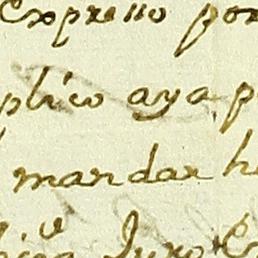 expreso por
plico aya p
mandar h
Juro